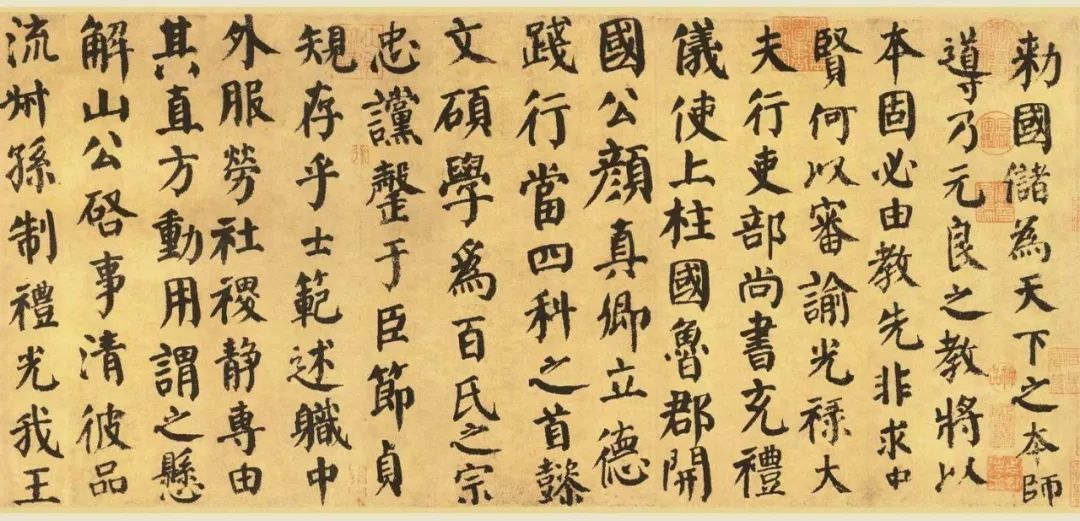 勑國儲為天下之本師
導乃元良之教將以
本固必由教先非求中
賢何以審諭光祿大
夫行吏部尚書充禮
儀使上柱國魯郡開
國公顏真卿立德
踐行當四科之首懿
文碩學爲百氏之宗
忠讜罄于臣節貞
規存乎士範述職中
外服勞社稷静專由
其直方動用謂之懸
解山公啓事清彼品
流叔孫制禮光我王